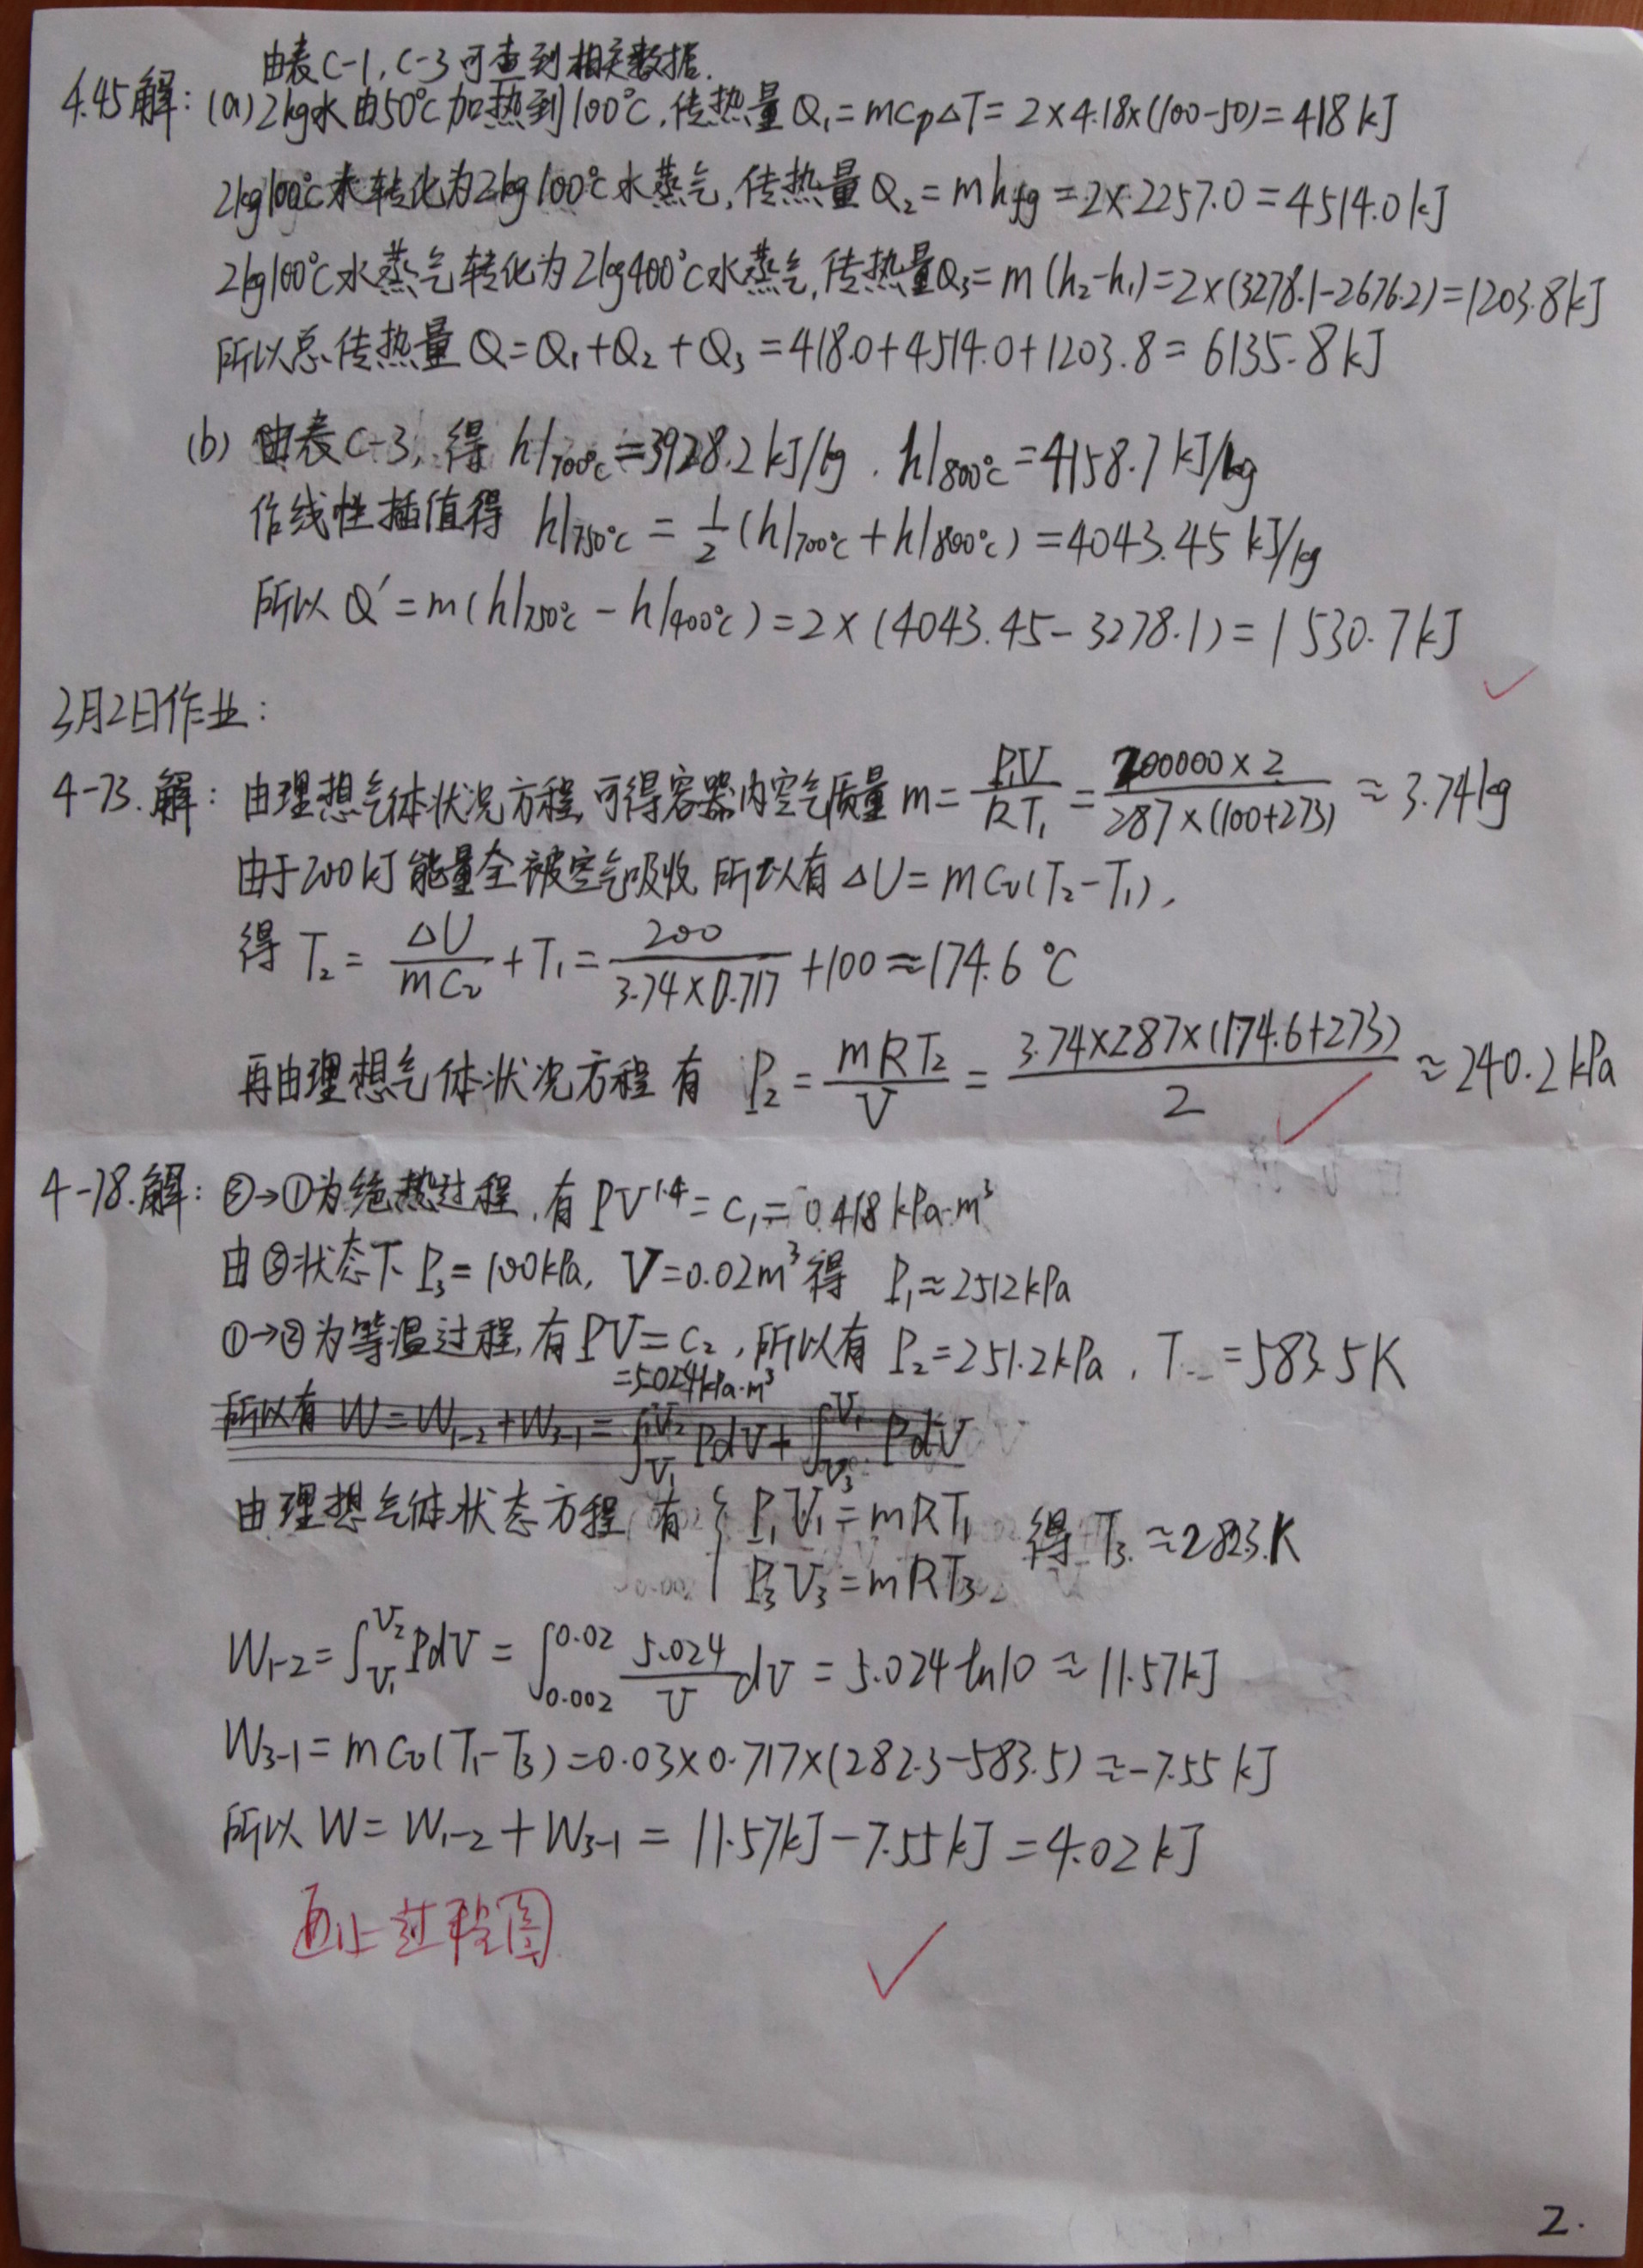 由表C-1,C-3可查到相关数据.
4.45解:(a)2kg水由50℃加热到100℃,传热量Q₁=mCpΔT=2×4.18×(100-50)=418kJ
2kg100℃水转化为2kg100℃水蒸气,传热量Q₂=mhfg=2×2257.0=4514.0kJ
2kg100℃水蒸气转化为2kg400℃水蒸气,传热量Q₃=m(h₂-h₁)=2×(3278.1-2676.2)=1203.8kJ
所以总传热量Q=Q₁+Q₂+Q₃=418.0+4514.0+1203.8=6135.8kJ
(b)由表C-3,得h|700℃=3928.2kJ/kg.h|800℃=4158.7kJ/kg
作线性插值得 h|750℃=1/2(h|700℃+h|800℃)=4043.45kJ/kg
所以Q'=m(h|750℃-h|400℃)=2×(4043.45-3278.1)=1530.7kJ
3月2日作业:
4-73.解:由理想气体状况方程,可得容器内空气质量m=P₁V/RT₁=200000×2/287×(100+273)≈3.74kg
由于200kJ能量全被空气吸收,所以有ΔU=mCv(T₂-T₁),
得T₂=ΔU/mCv+T₁=200/3.74×0.717+100≈174.6℃
再由理想气体状况方程有 P₂=mRT₂/V=3.74×287×(174.6+273)/2≈240.2kPa
4-78.解:③→①为绝热过程,有PV^1.4=C₁=0.418kPa·m³
由③状态下P₃=100kPa,V=0.02m³得 P₁≈2512kPa
①→②为等温过程,有PV=C₂,所以有P₂=251.2kPa,T₂=583.5K
=5.024kPa·m³
所以有W=W₁₋₂+W₃₋₁=∫V₁^V₂PdV+∫V₃^V₁PdV
由理想气体状态方程,有{P₁V₁=mRT₁ 得T₃≈282.3K
P₃V₃=mRT₃
W₁₋₂=∫V₁^V₂PdV=∫0.002^0.02 5.024/V dV=5.024ln10≈11.57kJ
W₃₋₁=mCv(T₁-T₃)=0.03×0.717×(282.3-583.5)≈-7.55kJ
所以W=W₁₋₂+W₃₋₁=11.57kJ-7.55kJ=4.02kJ
画上过程图
2.